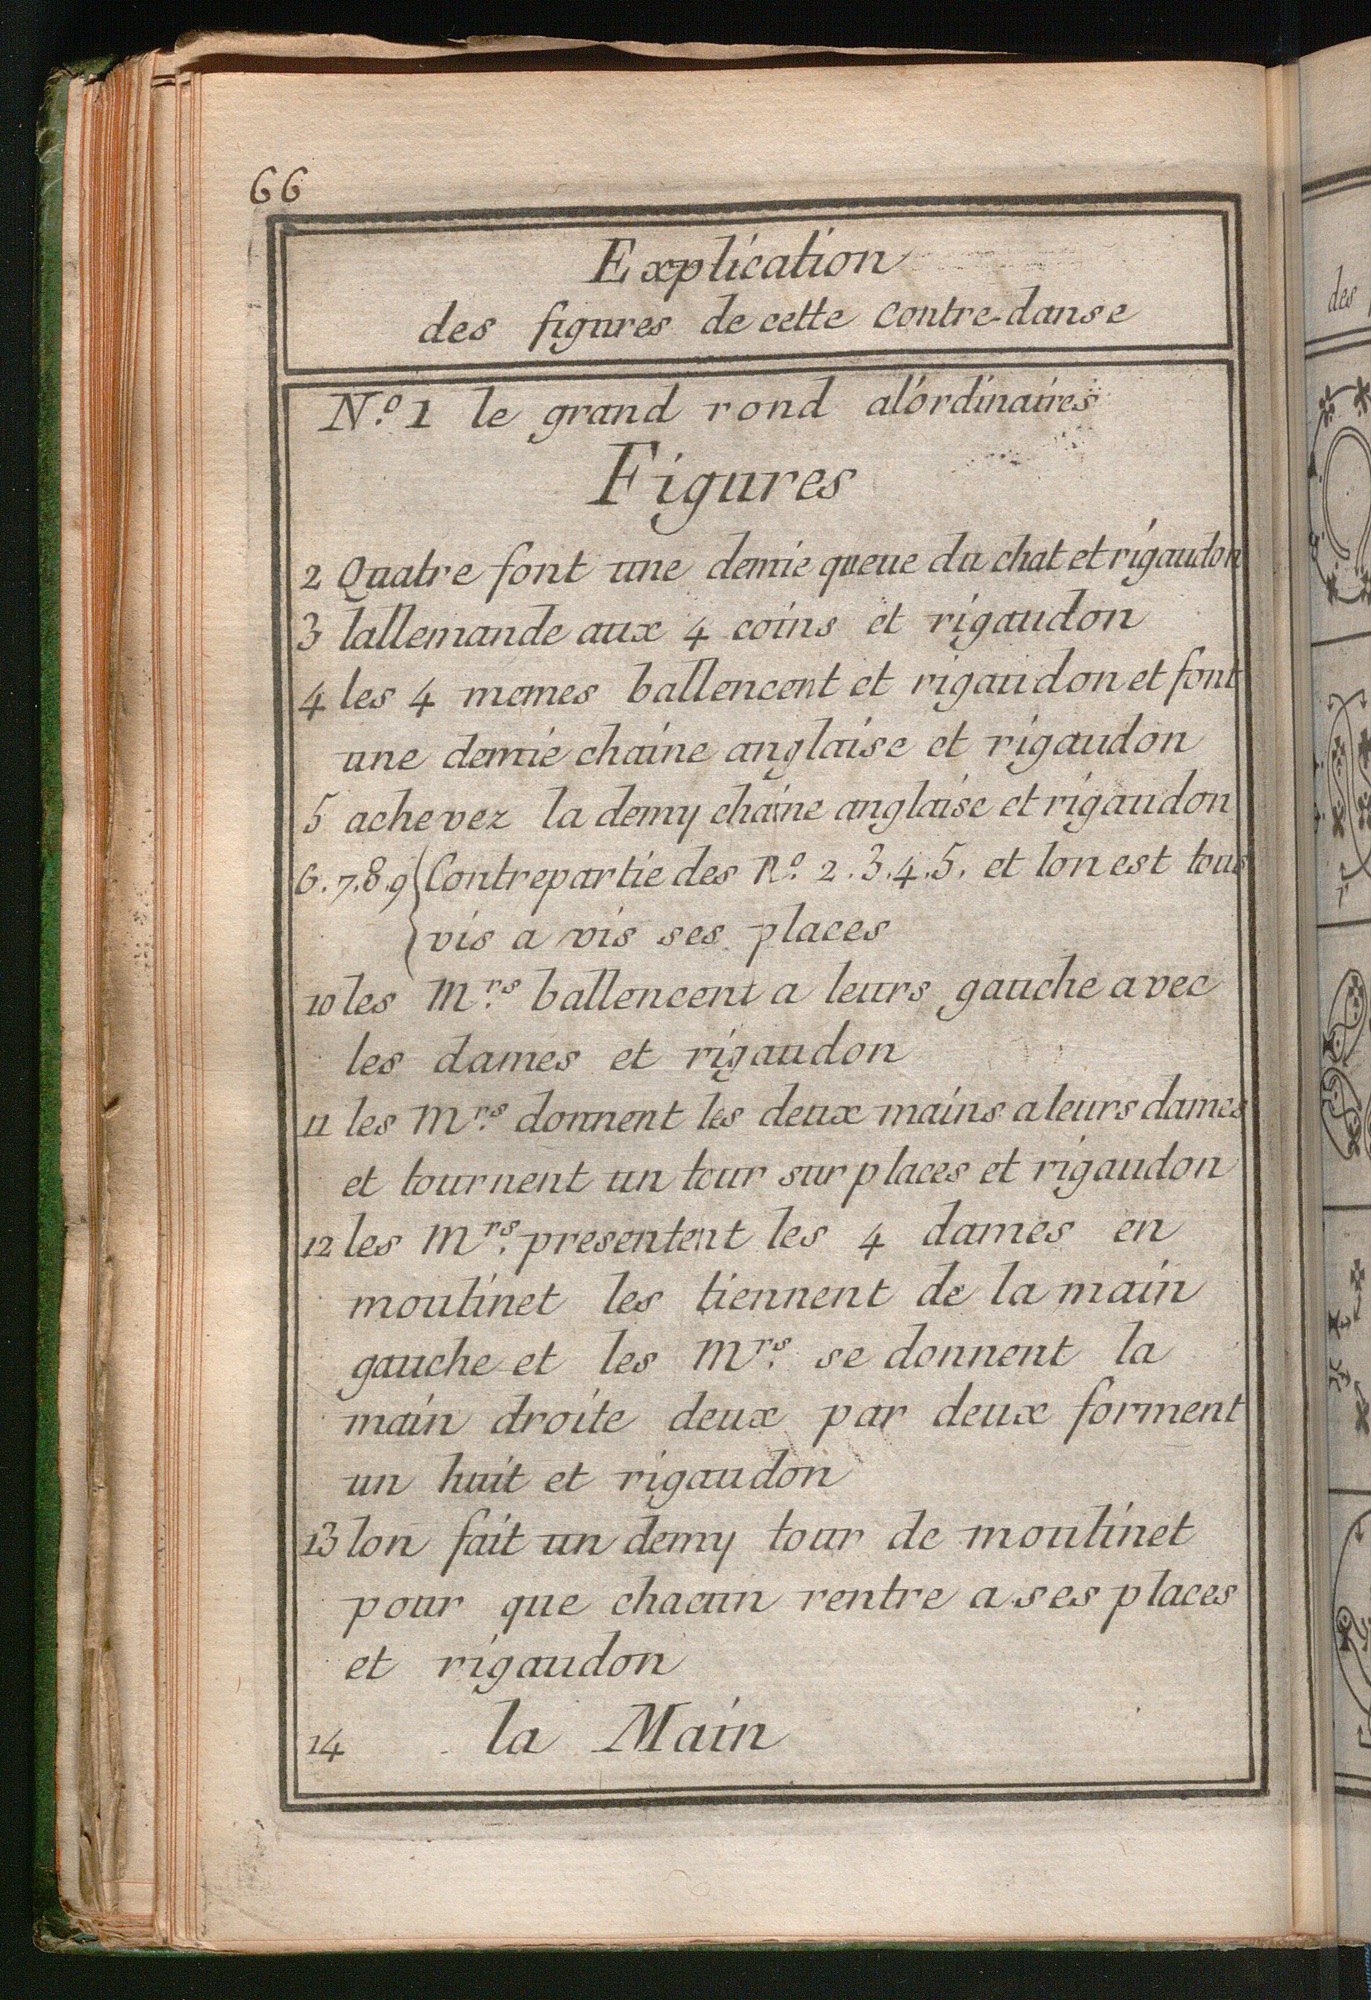 66
Explication
des figures de cette Contre-danse
N.º 1 le grand rond al'ordinaires
Figures
2 Quatre font une demie queue du chat et rigaudon
3 lallemande aux 4 coins et rigaudon
4 les 4 memes ballencent et rigaudon et font
une demie chaine anglaise et rigaudon
5 achevez la demy chaine anglaise et rigaudon
6.7.8.9 { Contrepartie des N.º 2.3.4.5. et lon est tous
vis a vis ses places
10 les M.rs ballencent a leurs gauche avec
les dames et rigaudon
11 les M.rs donnent les deux mains a leurs dames
et tournent un tour sur places et rigaudon
12 les M.rs presentent les 4 dames en
moulinet les tiennent de la main
gauche et les M.rs se donnent la
main droite deux par deux forment
un huit et rigaudon
13 lon fait un demy tour de moulinet
pour que chacun rentre a ses places
et rigaudon
14 la Main
des